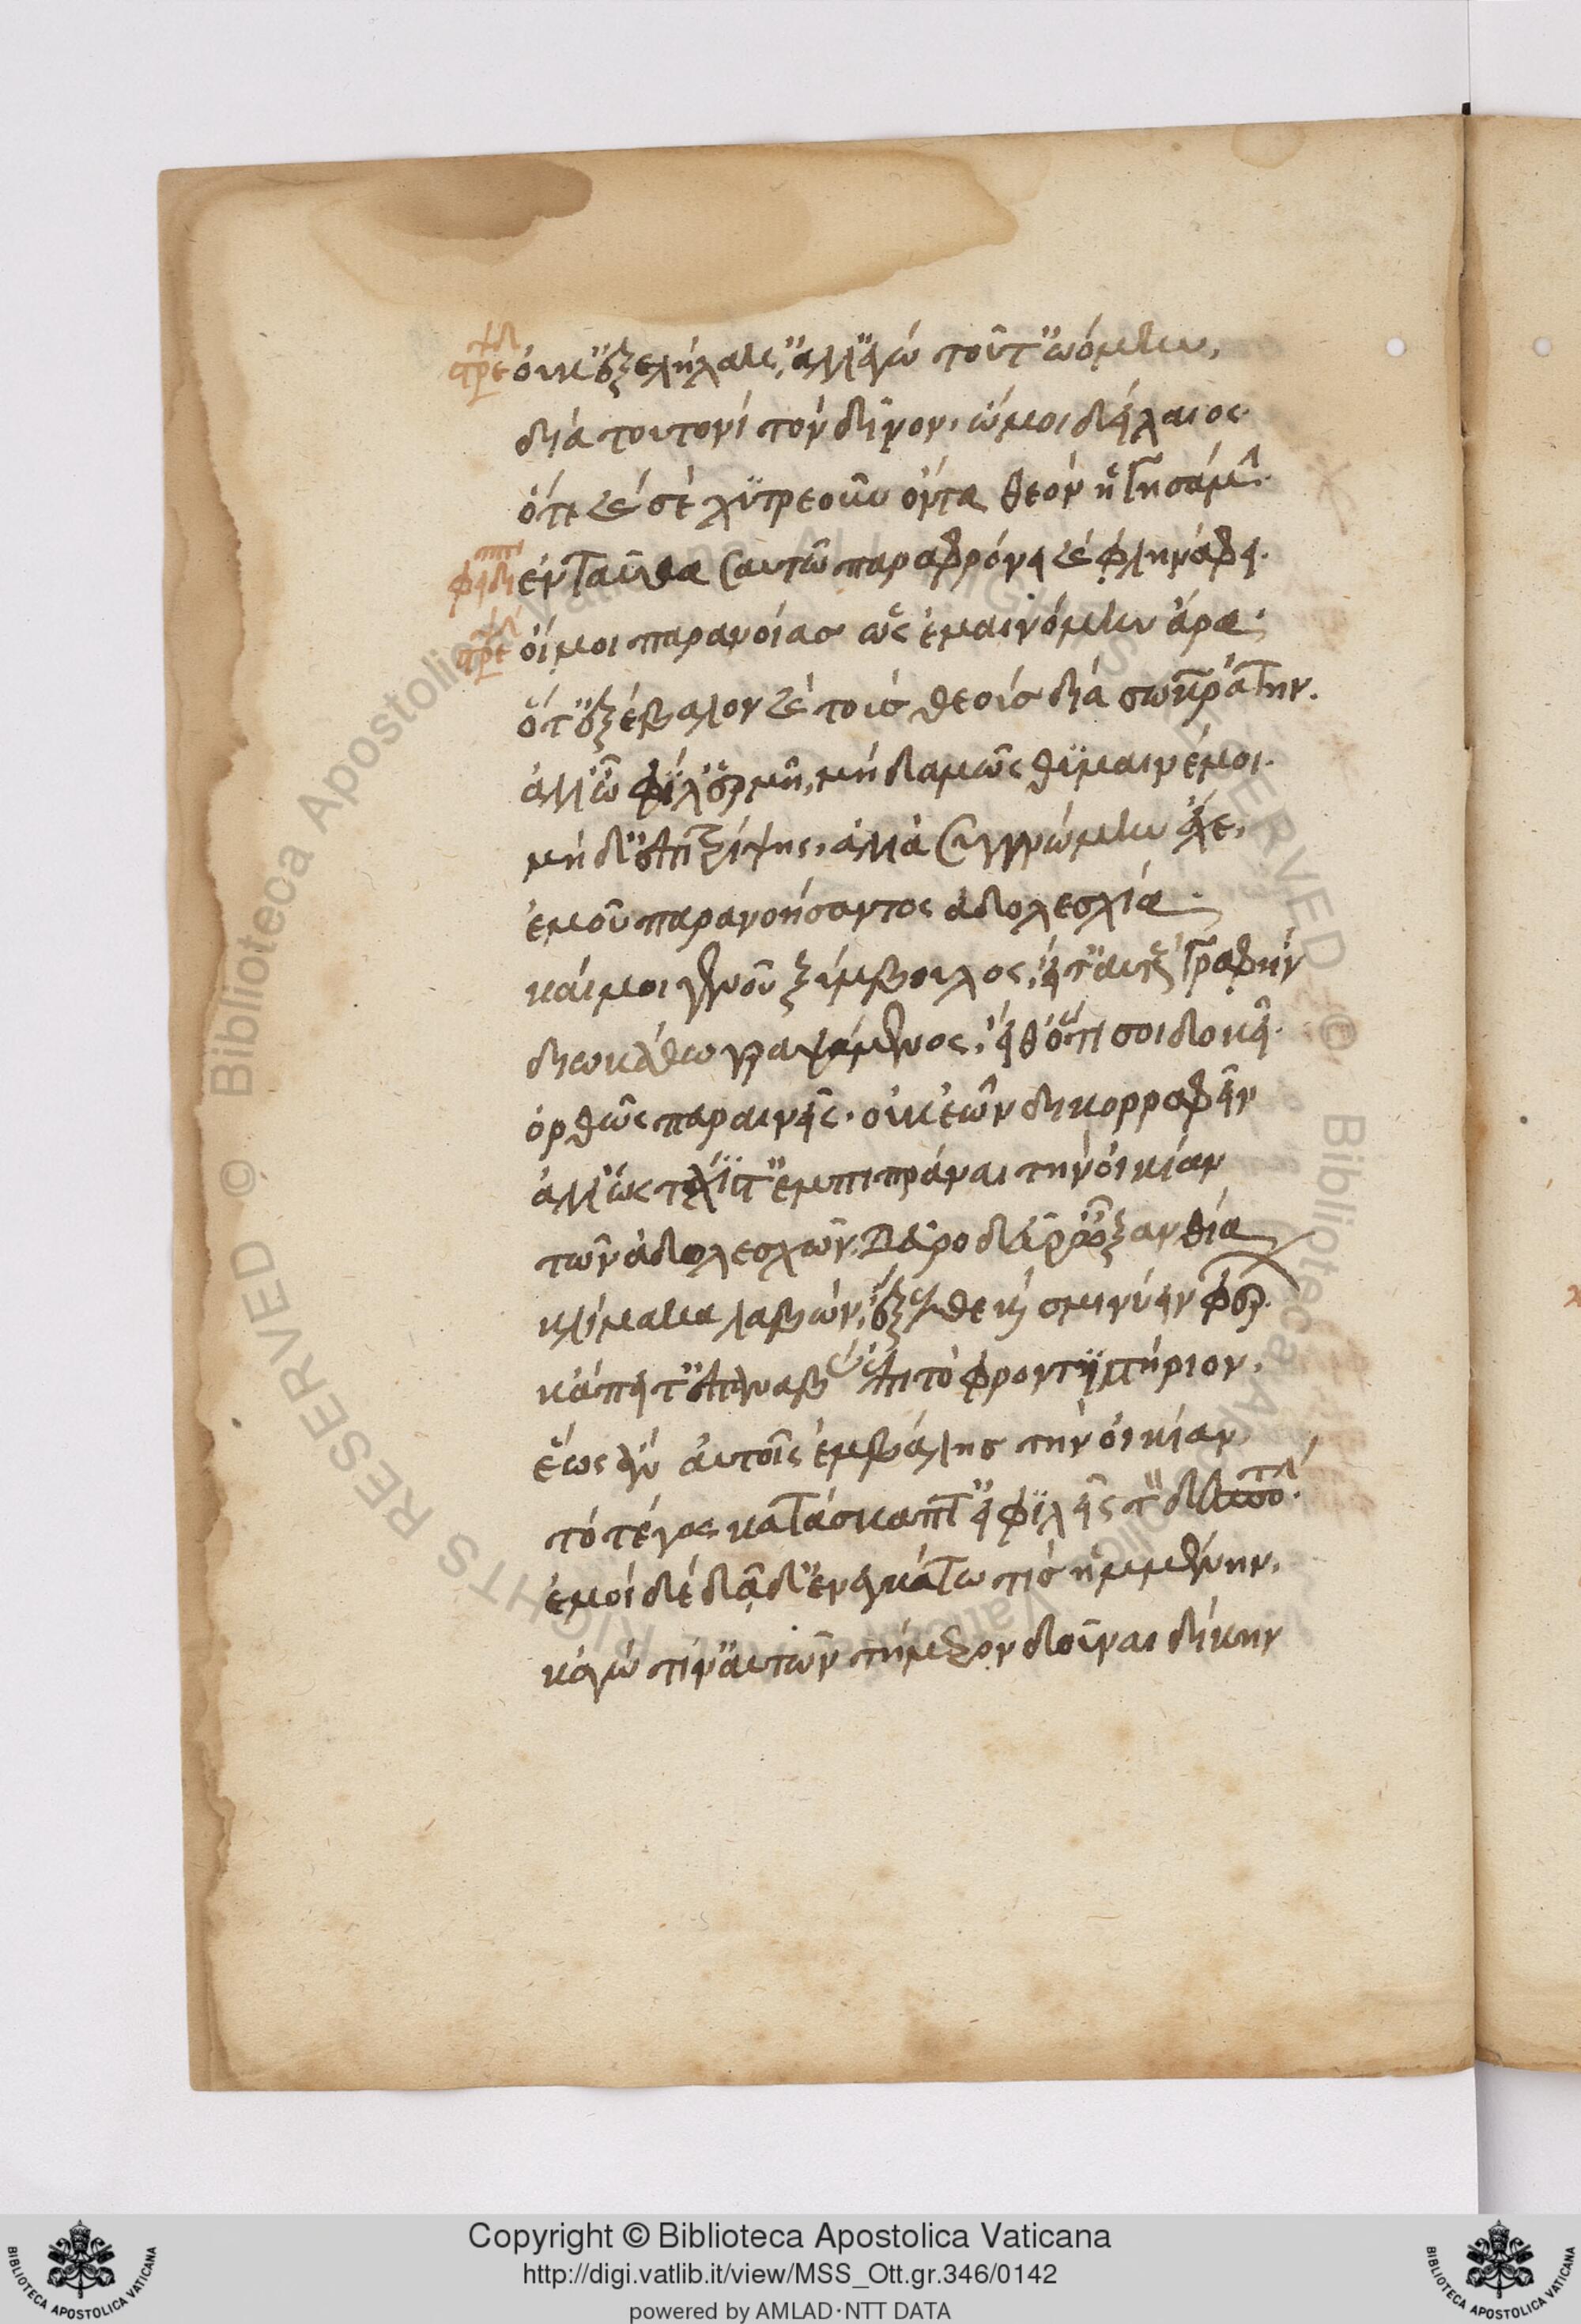 στρε οὐκ ἐξελήλακ', ἀλλ' ἐγὼ τοῦτ' ᾠόμην,
διὰ τουτονὶ τὸν δῖνον, ὤμοι δείλαιος.
ὅτε καὶ σὲ χυτρεοῦν ὄντα θεὸν ἡγησάμην.
φειδι ἐνταῦθα σαυτῷ παραφρόνει καὶ φληνάφα.
στρε οἴμοι παρανοίας ὡς ἐμαινόμην ἄρα.
ὅτ' ἐξέβαλον καὶ τοὺς θεοὺς διὰ σωκράτην.
ἀλλ' ὦ φίλ' ἑρμῆ, μηδαμῶς θύμαινέ μοι.
μηδ' ἐπιτρίψῃς, ἀλλὰ συγγνώμην ἔχε,
ἐμοῦ παρανοήσαντος ἀδολεσχίᾳ.
καί μοι γενοῦ ξύμβουλος, εἴτ' αὐτοὺς γραφὴν
διωκάθω γραψάμενος, εἴθ' ὅτι σοι δοκεῖ.
ὀρθῶς παραινεῖς. οὐκ ἐῶν δικορραφεῖν
ἀλλ' ὡς τάχιστ' ἐμπιπράναι τὴν οἰκίαν
τῶν ἀδολεσχῶν. δεῦρο δεῦρ' ὦ ξανθία
κλίμακα λαβών, ἔξελθε καὶ σμινύην φέρων.
κἄπειτ' ἐπαναβὰς ἐπὶ τὸ φροντιστήριον,
ἕως ἂν αὐτοῖς ἐμβάλῃς τὴν οἰκίαν
τὸ τέγος κατάσκαπτ' εἰ φιλεῖς τὸν δεσπότην.
ἐμοὶ δὲ δᾷδ' ἐνεγκάτω τις ἡμμένην,
κἀγώ τιν' αὐτῶν τήμερον δοῦναι δίκην
Copyright © Biblioteca Apostolica Vaticana
http://digi.vatlib.it/view/MSS_Ott.gr.346/0142
powered by AMLAD·NTT DATA